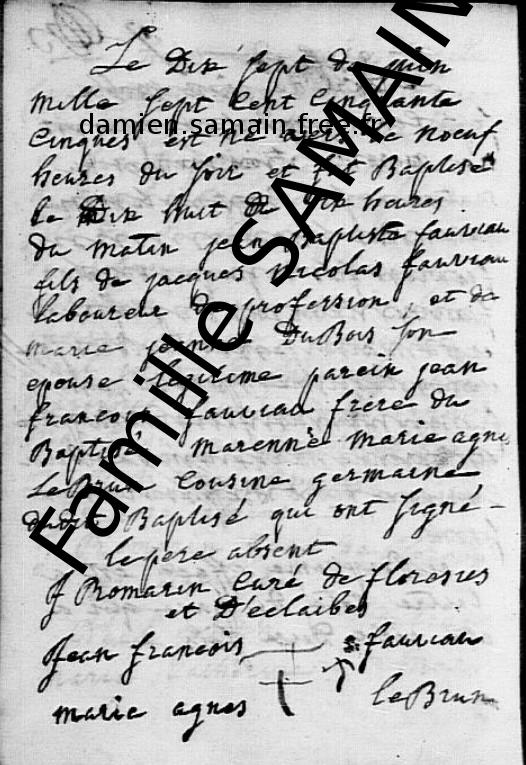 Le Dix sept de juin
mille sept Cent Cinquante
Cinques est né vers le noeuf
heures du soir et fut Baptisé
le Dix huit de Dix heures
du matin jean Baptiste fauviau
fils de jacques nicolas fauviau
laboureur de profession, et de
marie jeanne DuBois son
epouse legitime parein jean
francois fauviau frere du
Baptisé marenne marie agnes
LeBrun Cousine germaine
dudit Baptisé qui ont signé -
le pere absent
J Romarin Curé de floresies
et D'eclaibes
Jean francois fauviau
marie agnes leBrun
damien.samain.free.fr
Famille SAMAIN